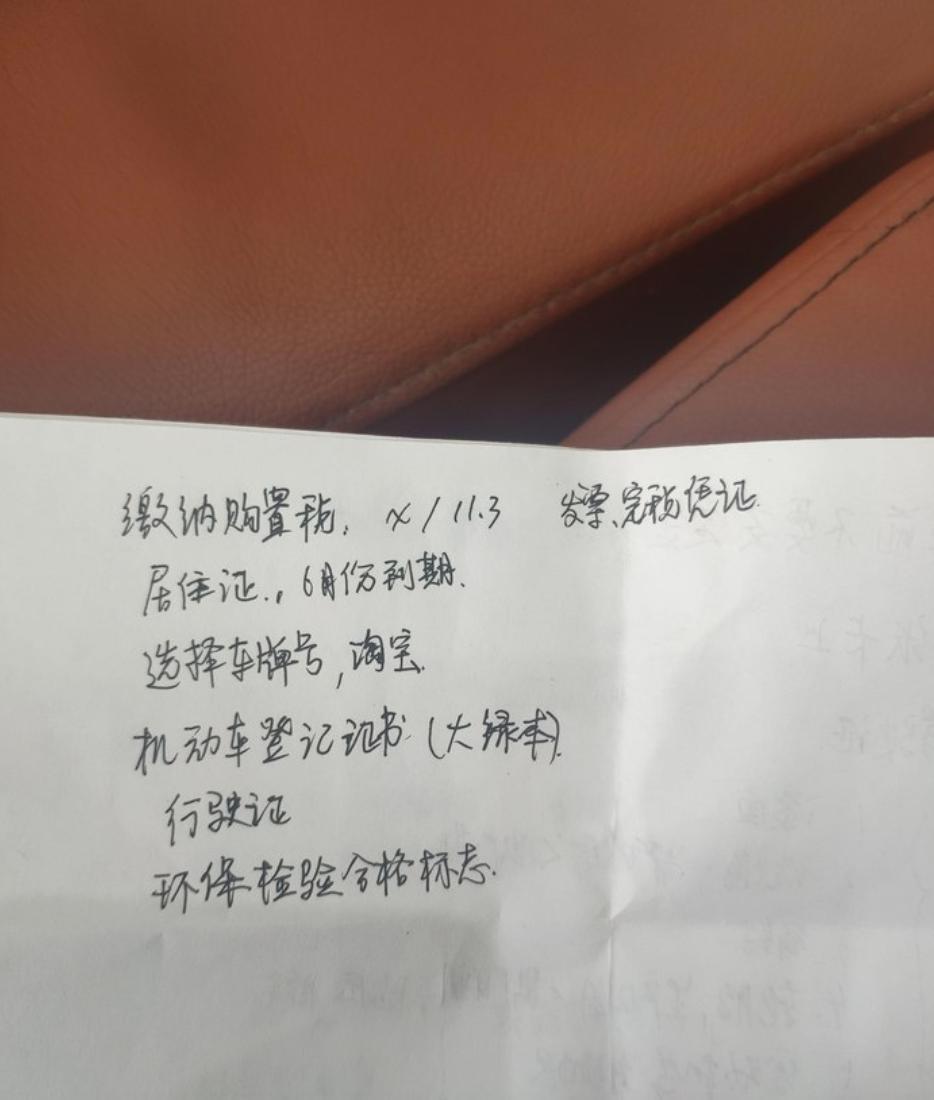 缴纳购置税, x/11.3 发票、完税凭证.
居住证., 6月份到期.
选择车牌号,淘宝.
机动车登记证书.(大绿本).
行驶证
环保检验合格标志.